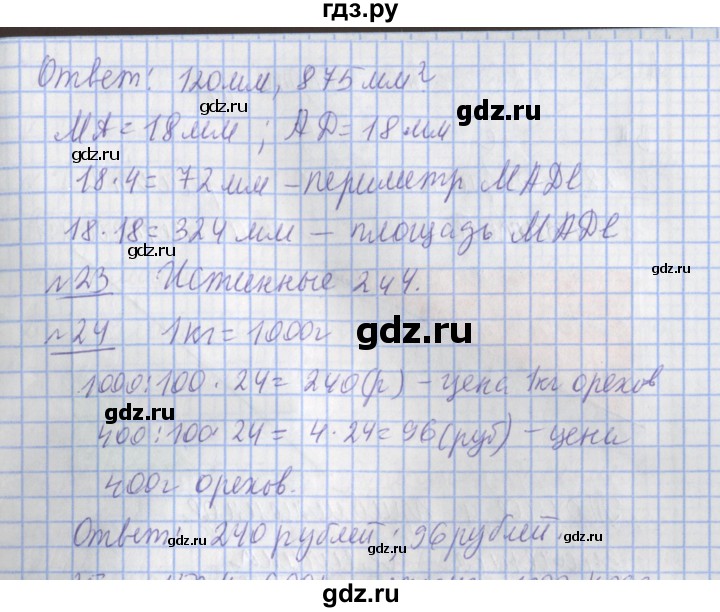 гдз.ру
Ответ: 120мм, 875мм²
gdz.ru
МА = 18мм ; АД = 18мм
gdz.ru
18·4 = 72мм – периметр МАДС
gdz.ru
18·18 = 324мм – площадь МАДС
gdz.ru
№23 Истинные 2 4 4.
gdz.ru
№24 1кг = 1000г
gdz.ru
1000:100·24 = 240(р) – цена 1кг орехов
gdz.ru
400:100·24 = 4·24 = 96(руб) – цена
gdz.ru
400г орехов.
gdz.ru
Ответ: 240 рублей; 96 рублей.
gdz.ru
gdz.ru
gdz.ru